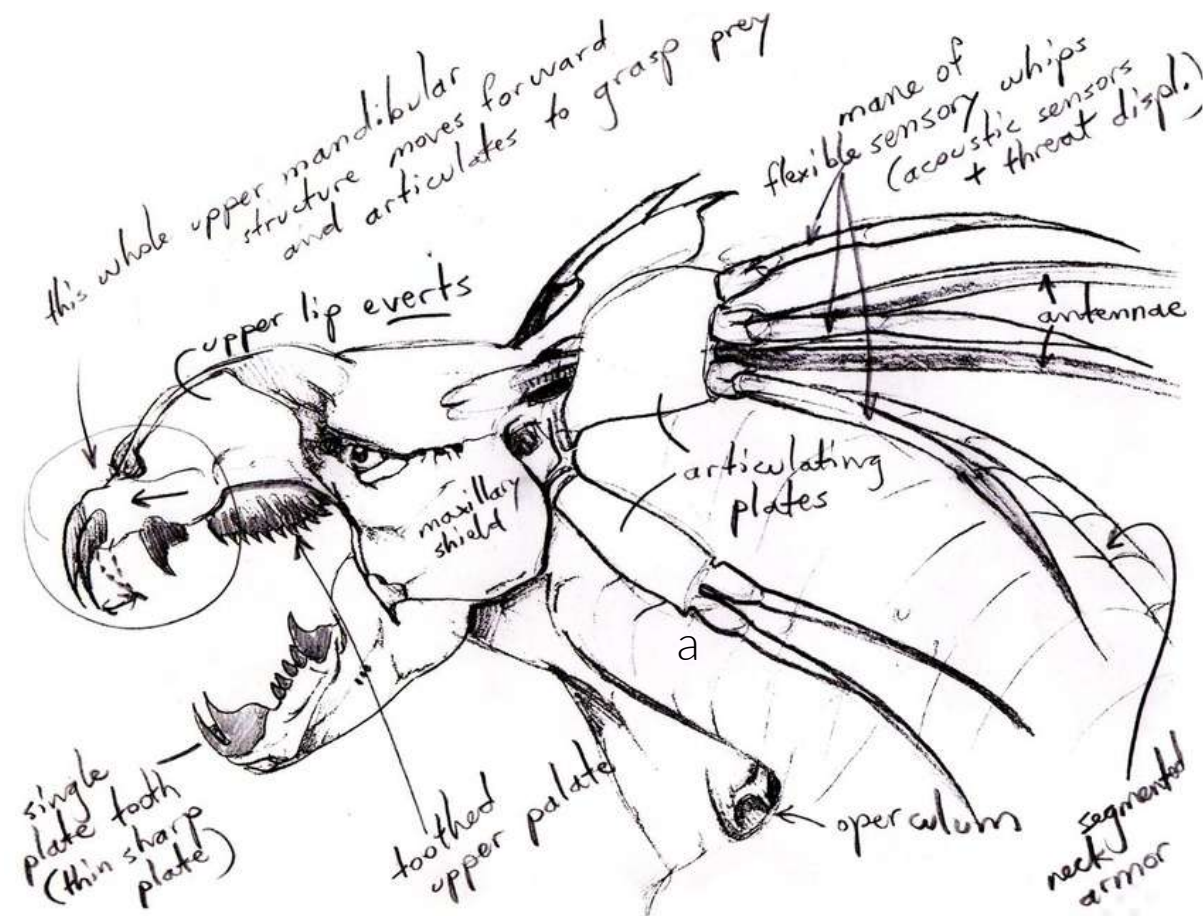 this whole upper mandibular
structure moves forward
and articulates to grasp prey
mane of
flexible sensory whips
(acoustic sensors
+ threat displ.)
upper lip everts
antennae
articulating
plates
maxillary
shield
a
single
plate tooth
(thin sharp
plate)
toothed
upper palate
operculum
segmented
neck
armor